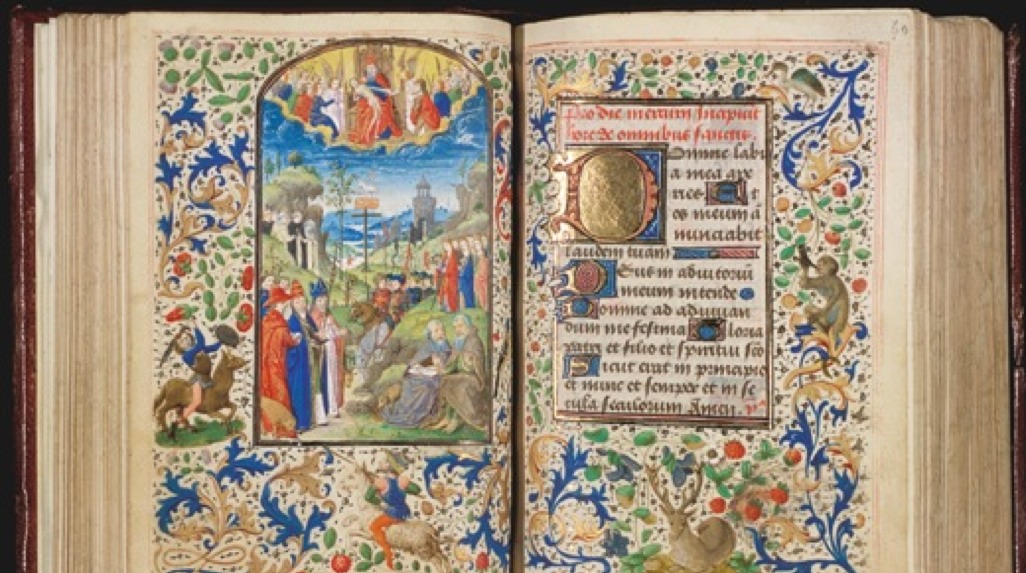 60
Pro die mercurii Incipiunt
hore de omnibus sanctis.
Domine labi
a mea ape
ries Et
os meum a
nunciabit
laudem tuam
Deus in adiutoriū
meum intende
Domine ad adiuuan
dum me festina Gloria
patri et filio et spiritui sc̄o
Sicut erat in principio
et nunc et semper et in se
cula seculorum Amen.